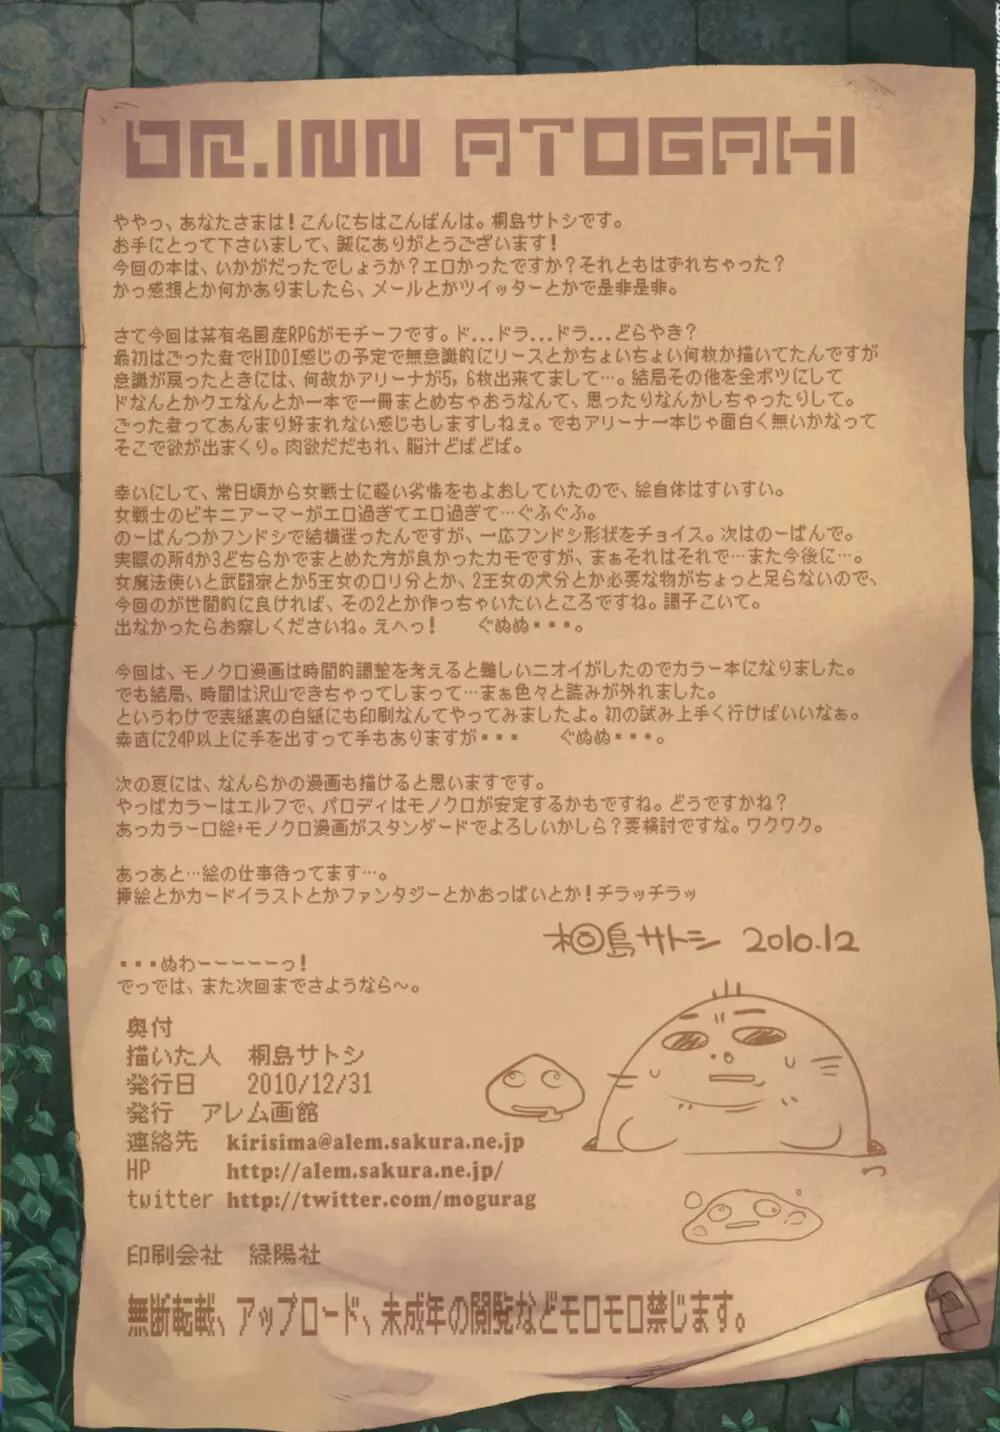 DR.INN ATOGAKI
ややっ、あなたさまは!こんにちはこんばんは。桐島サトシです。
お手にとって下さいまして、誠にありがとうございます!
今回の本は、いかがだったでしょうか?エロかったですか?それともはずれちゃった?
かっ感想とか何かありましたら、メールとかツイッターとかで是非是非。
さて今回は某有名国産RPGがモチーフです。ド...ドラ...ドラ...どらやき?
最初はごった煮でHIDOI感じの予定で無意識的にリースとかちょいちょい何枚か描いてたんですが
意識が戻ったときには、何故かアリーナが5,6枚出来てまして…。結局その他を全ボツにして
ドなんとかクエなんとか一本で一冊まとめちゃおうなんて、思ったりなんかしちゃったりして。
ごった煮ってあんまり好まれない感じもしますしねぇ。でもアリーナ一本じゃ面白く無いかなって
そこで欲が出まくり。肉欲だだもれ、脳汁どばどば。
幸いにして、常日頃から女戦士に軽い劣情をもよおしていたので、絵自体はすいすい。
女戦士のビキニアーマーがエロ過ぎてエロ過ぎて…ぐふぐふ。
のーぱんつかフンドシで結構迷ったんですが、一応フンドシ形状をチョイス。次はのーぱんで。
実際の所4か3どちらかでまとめた方が良かったカモですが、まぁそれはそれで…また今後に…。
女魔法使いと武闘家とか5王女のロリ分とか、2王女の犬分とか必要な物がちょっと足らないので、
今回のが世間的に良ければ、その2とか作っちゃいたいところですね。調子こいて。
出なかったらお察しくださいね。えへっ! ぐぬぬ・・・。
今回は、モノクロ漫画は時間的調整を考えると難しいニオイがしたのでカラー本になりました。
でも結局、時間は沢山できちゃってしまって…まぁ色々と読みが外れました。
というわけで表紙裏の白紙にも印刷なんてやってみましたよ。初の試み上手く行けばいいなぁ。
素直に24P以上に手を出すって手もありますが・・・ ぐぬぬ・・・。
次の夏には、なんらかの漫画も描けると思いますです。
やっぱカラーはエルフで、パロディはモノクロが安定するかもですね。どうですかね?
あっカラー口絵+モノクロ漫画がスタンダードでよろしいかしら?要検討ですな。ワクワク。
あっあと…絵の仕事待ってます…。
挿絵とかカードイラストとかファンタジーとかおっぱいとか!チラッチラッ
桐島サトシ 2010.12
・・・ぬわーーーーーっ!
でっでは、また次回までさようなら〜。
奥付
描いた人 桐島サトシ
発行日 2010/12/31
発行 アレム画館
連絡先 kirisima@alem.sakura.ne.jp
HP http://alem.sakura.ne.jp/
twitter http://twitter.com/mogurag
印刷会社 緑陽社
無断転載、アップロード、未成年の閲覧などモロモロ禁じます。